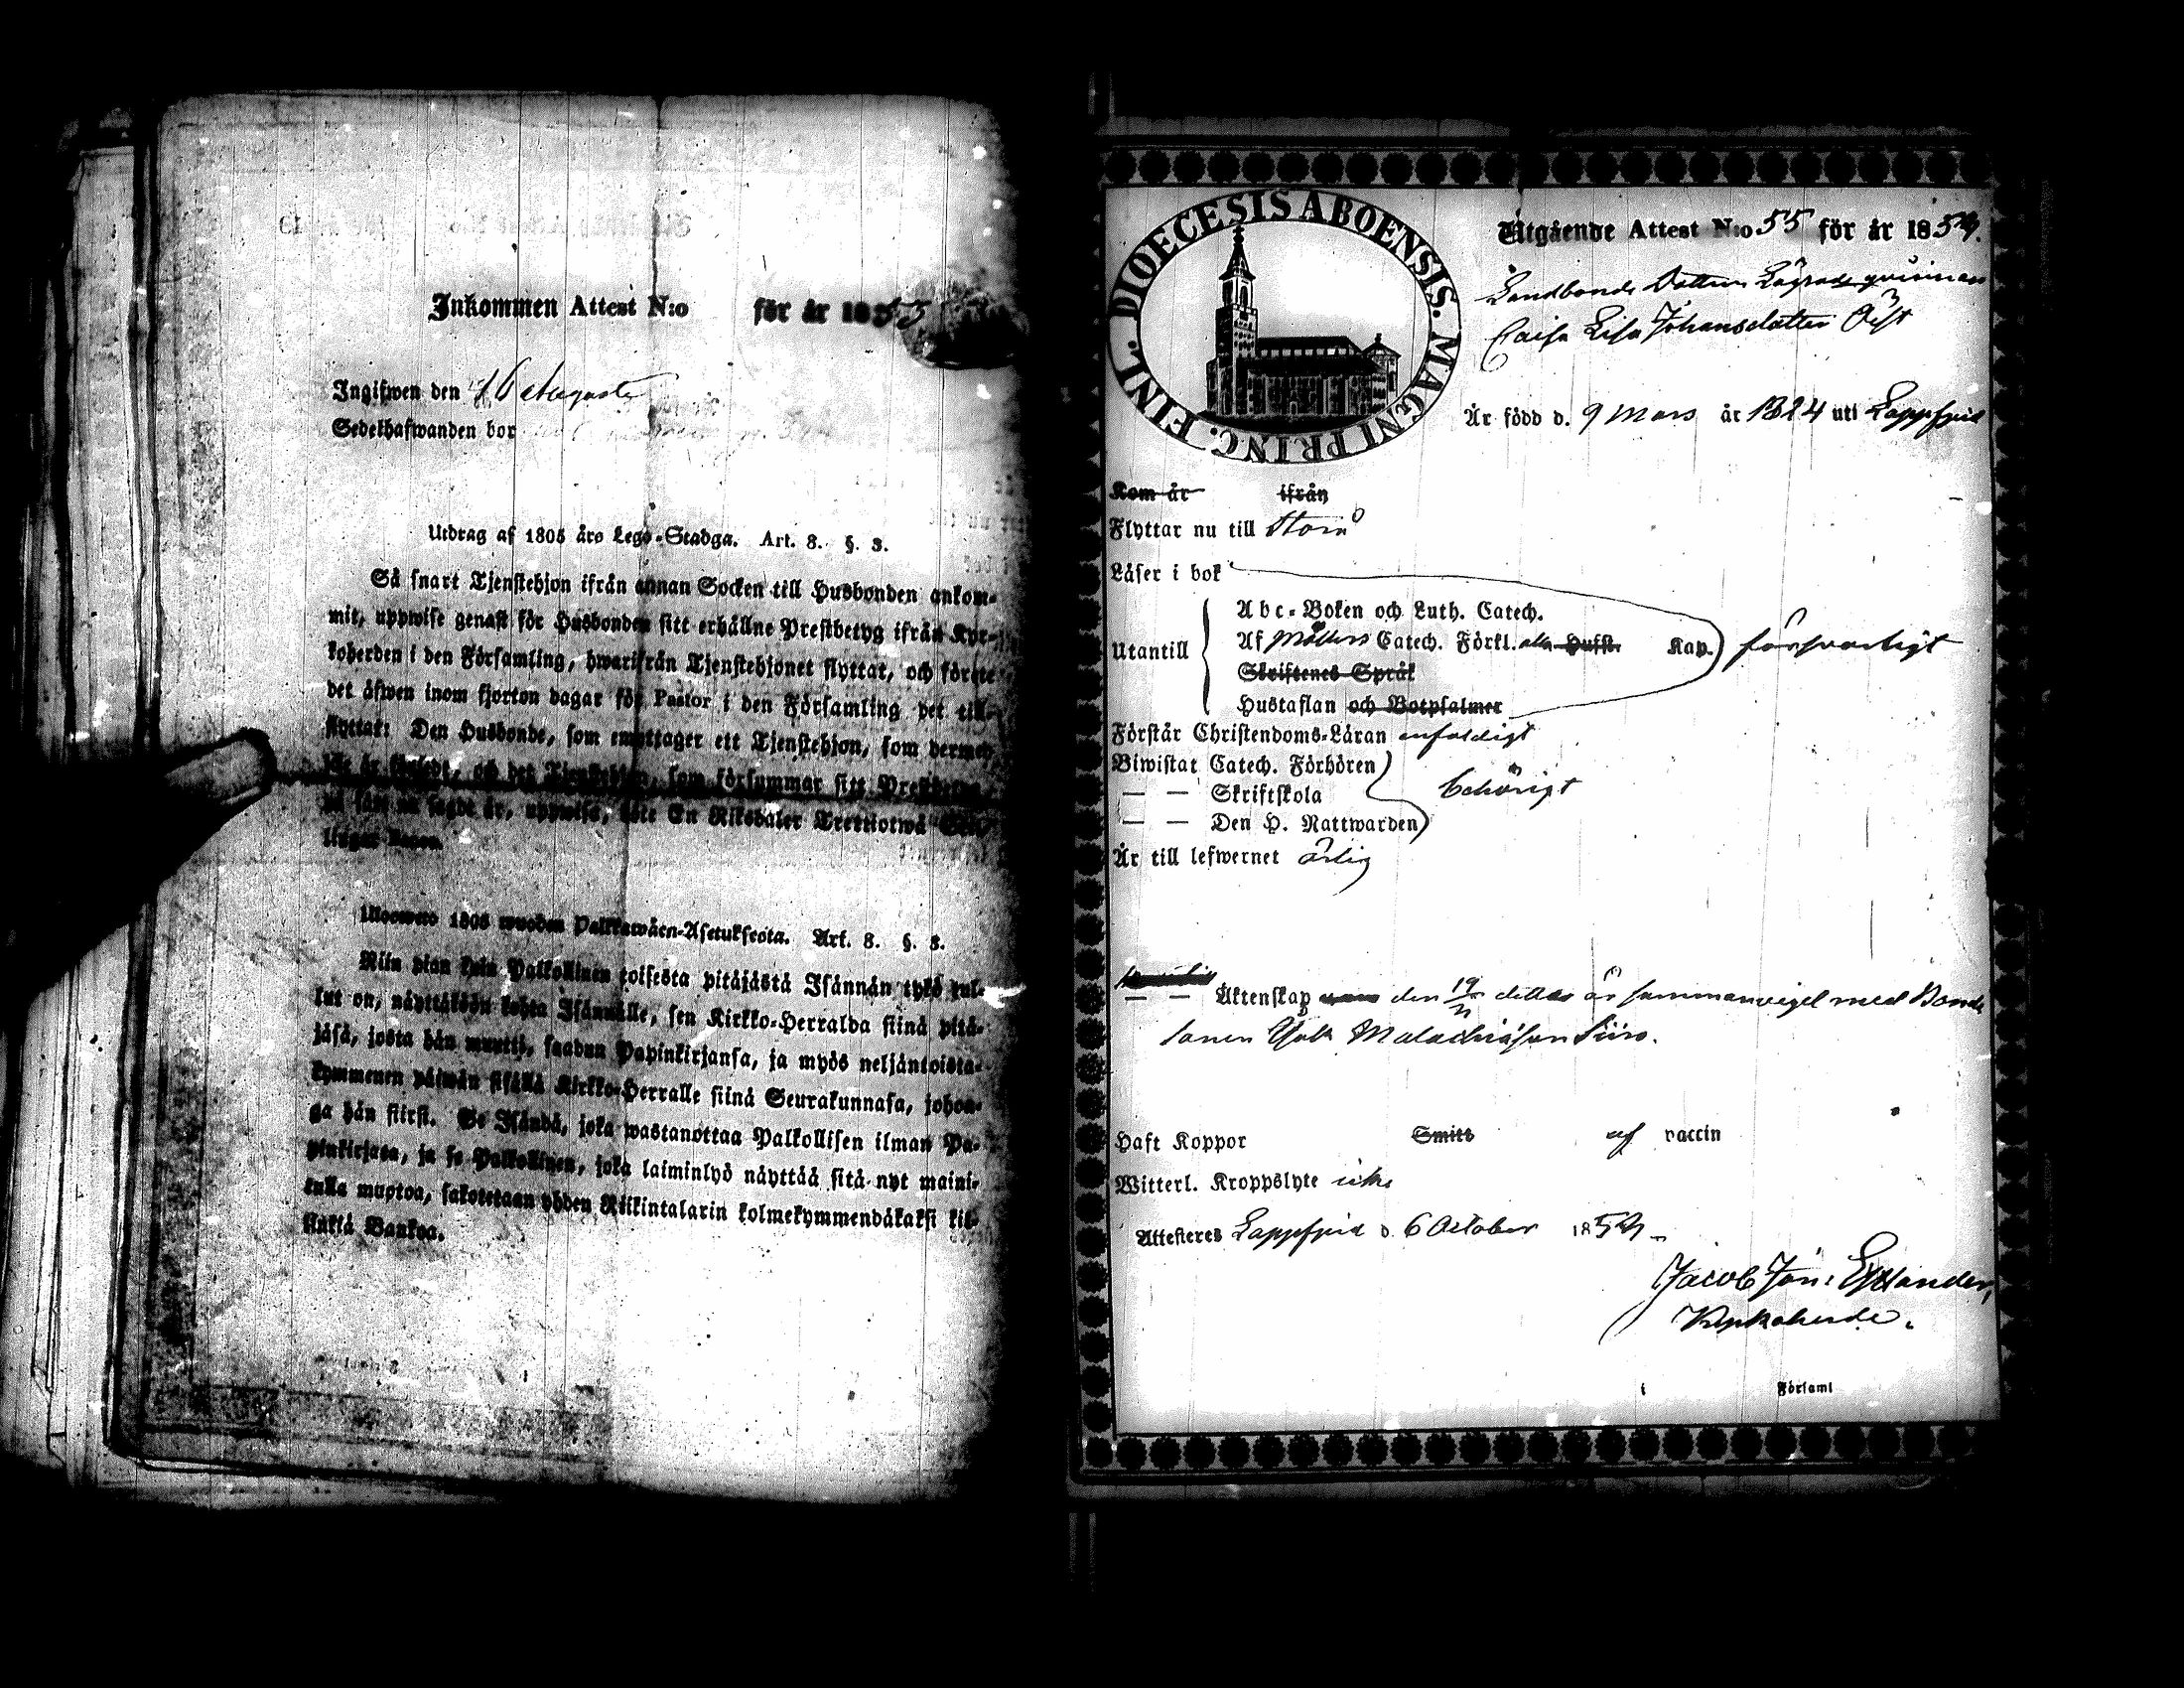 Inkommen Attest N:o för år 1855
Ingifwen den 16 Augusti
Sedelhafwanden bor
Utdrag af 1805 års Lego-Stadga. Art. 8. §. 3.
Så snart Tjenstehjon ifrån annan Socken till Husbonden ankom-
mit, uppwise genast för Husbonden sitt erhållne Prestbetyg ifrån Kyr-
koherden i den Församling, hwarifrån Tjenstehjonet flyttat, och förete
det äfwen inom fjorton dagar för Pastor i den Församling det till-
flyttat: Den Husbonde, som emottager ett Tjenstehjon, som dermed
och det Tjenstehjon, som försummar sitt Prestbetyg
på sätt nu sagdt är, uppwisa, böte En Riksdaler Trettiotwå Skil-
lingar Banco.
1805 wuoden Palkkawäen-Asetuksesta. Art. 8. §. 3.
Niin pian kuin Palkollinen toisesta pitäjästä Isännän tykö tul-
lut on, näyttäköön kohta Isännälle, sen Kirkko-Herralda siinä pitä-
jäsä, josta hän muutti, saadun Papinkirjansa, ja myös neljäntoista-
kymmenen päiwän sisällä Kirkko-Herralle siinä Seurakunnasa, johon-
ga hän siirsi. Se Isändä, joka wastanottaa Palkollisen ilman Pa-
pinkirjata, ja se Palkollinen, joka laiminlyö näyttää sitä nyt maini-
tulla muotoa, sakotetaan yhden Riikintalarin kolmekymmendäkaksi kil-
linkiä Bankoa.
FINL. DIOECESIS ABOENSIS. MAGNI PRINC.
Utgående Attest N:o 55 för år 1854.
Landbonde Dottren Lägrade qvinnan
Caisa Lisa Johansdotter Öist
Är född d. 9 Mars år 1824 uti Lappfjerd
Kom år ifrån
Flyttar nu till Storå
Läser i bok
Abc-Boken och Luth. Catech.
Utantill Af Möllers Catech. Förkl. alla Hufst. Kap. försvarligt
Skriftenes Språk
Hustaflan och Botpsalmer
Förstår Christendoms-Läran enfaldigt
Biwistat Catech. Förhören
— — Skriftskola behörigt
— — Den H. Nattwarden
Är till lefwernet ärlig
— — Äktenskap den 19 dittas är sammanvigd med Bonde
sonen Malachiasson Siiro.
Haft Koppor Smitt af vaccin
Witterl. Kroppslyte icke
Attesteres Lappfjerd d. 6 October 1854
Jacob Jon: Estlander,
Kyrkoherde.
i Församl